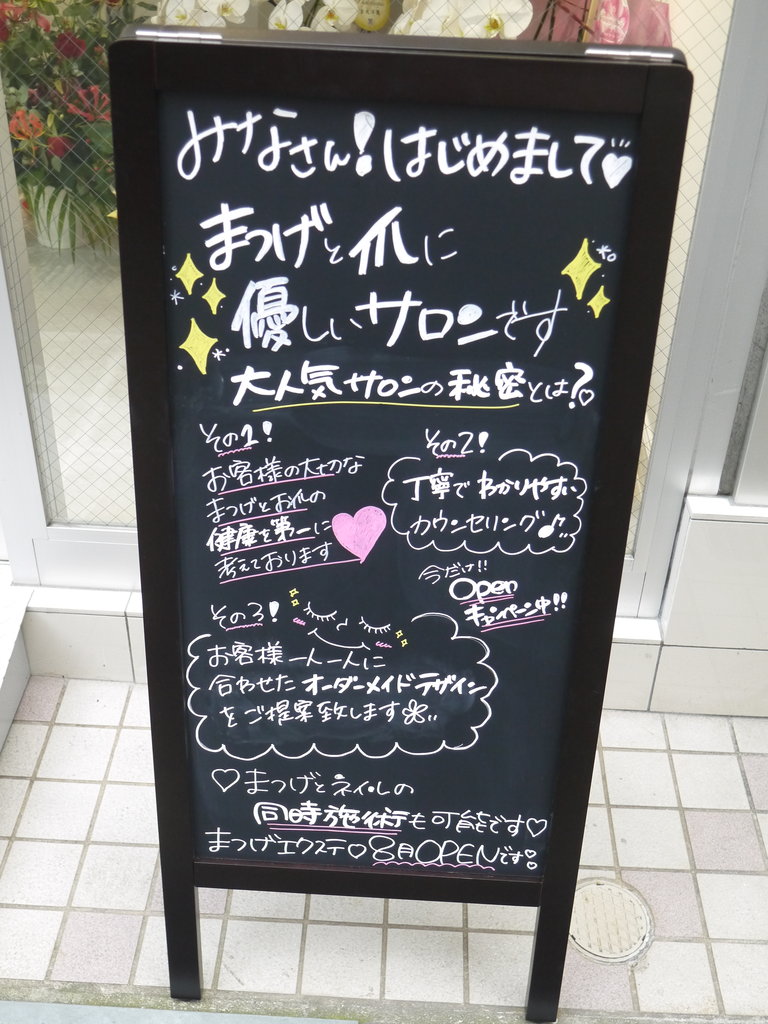 みなさん!はじめまして♡
まつげと爪に
優しいサロンです
大人気サロンの秘密とは?
その1!
お客様の大切な
まつげとお爪の
健康を第一に
考えております
その2!
丁寧でわかりやすい
カウンセリング♪
今だけ!!
Open
キャンペーン中!!
その3!
お客様一人一人に
合わせたオーダーメイドデザイン
をご提案致します
♡まつげとネイルの
同時施術も可能です♡
まつげエクステ♡8月OPENです!